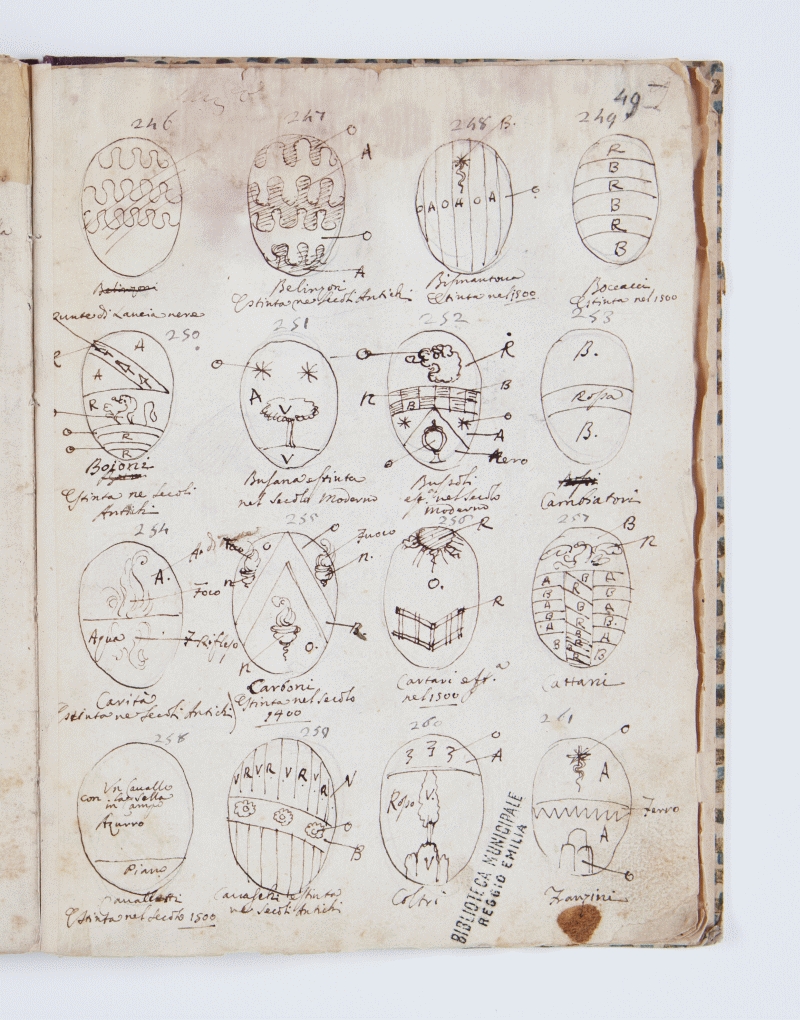 49
246
247
248
249
O
A
O
A
B.
O A O A O A
O
R
B
R
B
R
B
Belinzoni
Belinzoni
Estinta ne Secoli Antichi
Bismantova
Estinta nel 1500
Boccacci
Estinta nel 1500
punte di Lancia nere
250
251
252
253
A
A
R
R
R
O
O
O
A
V
V
O
R
R
B
B
O
A
Nero
O
B.
Rossa
B.
Bojorii
Estinta ne secoli
Antichi
Busana estinta
nel Secolo Moderno
Bussoli
est.ª nel secolo
Moderno
Cambiatori
254
255
256
257
A.
Foco
Aqua
Riflesso
O
O
Fuoco
n.
n
O.
R
n
R
O.
R
B
R
A
B
A
B
A
B
B
R
B
R
B
A
B
A
B.
A
B
Carità
Estinta ne Secoli Antichi
Carboni
Estinta nel Secolo
1400
Cartari est.ª
nel 1500
Cattani
258
259
260
261
Un Cavallo
con la sella
in campo
Azurro
Piano
V R V R V R V R
V
O
B
3 3 3
O
A
Rosso
V.
V
O
A
Ferro
A
O
Cavalletti
Estinta nel Secolo 1500
Cavaschi estinta
ne Secoli Antichi
Coltri
Zanzini
BIBLIOTECA MUNICIPALE
REGGIO EMILIA